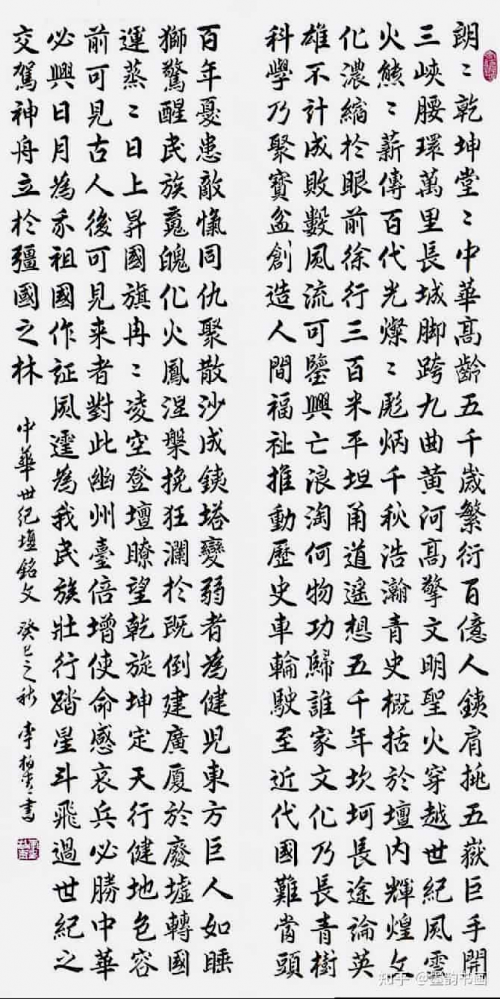 朗〻乾坤堂〻中華高齡五千歲繁衍百億人銕肩挑五嶽巨手開
三峽腰環萬里長城脚跨九曲黄河高擎文明聖火穿越世紀風雲
火熊〻薪傳百代光燦〻彪炳千秋浩瀚青史概括於壇内輝煌文
化濃縮於眼前徐行三百米平坦甬道遙想五千年坎坷長途論英
雄不計成敗數風流可鑒興亡浪淘何物功歸誰家文化乃長青樹
科學乃聚寶盆創造人間福祉推動歷史車輪駛至近代國難當頭
百年憂患敵愾同仇聚散沙成銕塔變弱者為健児東方巨人如睡
獅驚醒民族魂魄化火鳳涅槃挽狂瀾於既倒建廣厦於廢墟轉國
運蒸〻日上昇國旗冉〻凌空登壇瞭望乾旋坤定天行健地色容
前可見古人後可見来者對此幽州臺倍增使命感哀兵必勝中華
必興日月為我祖國作証風霆為我民族壯行踏星斗飛過世紀之
交駕神舟立於疆國之林
中華世紀壇銘文 癸巳之秋 李柏書
知乎 @墨韵书画